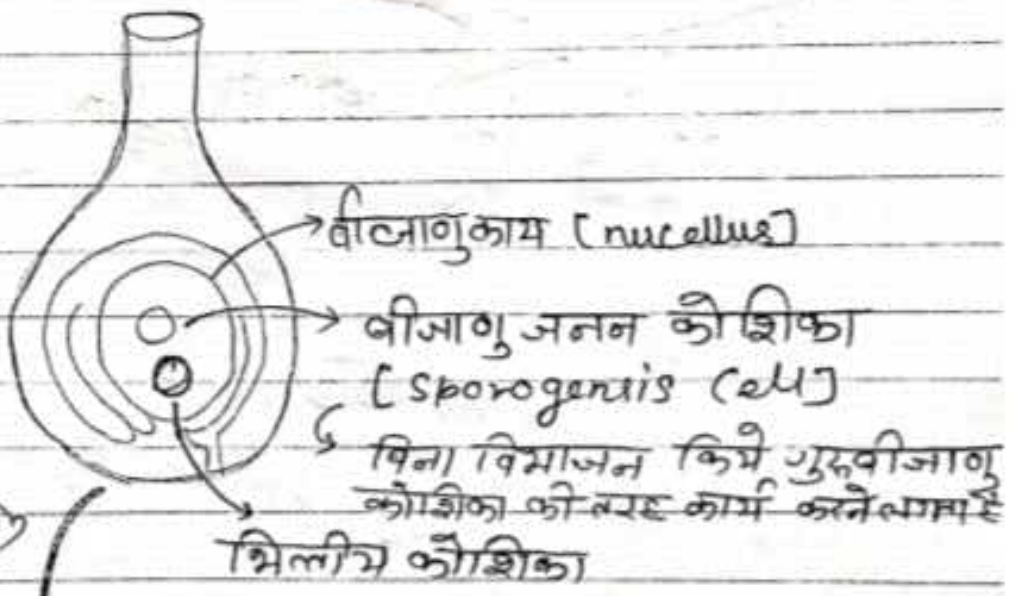 बीजाणुकाय [nucellus]
बीजाणु जनन कोशिका
[Sporogensis Cell]
बिना विभाजन किये गुरुबीजाणु
कोशिका की तरह कार्य करने लगता है
भित्तीय कोशिका